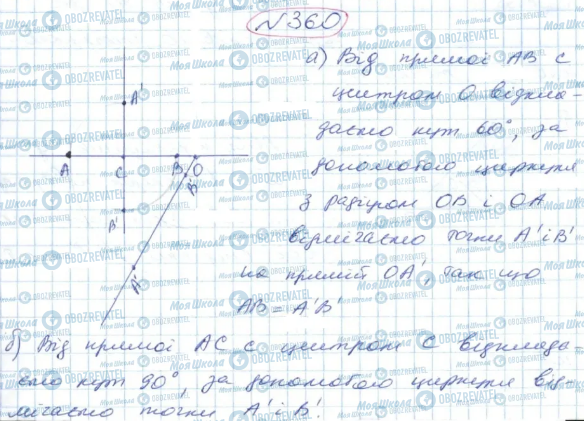 № 360
а) Від прямої АВ с
центром О відкла-
даємо кут 60°, за
допомогою циркуля
з радіусом ОВ і ОА
відмічаємо точки А' і В'
на прямій ОА', так що
АВ = А'В'
А'
А С В О
В'
В'
А'
б) Від прямої АС с центром С відклада-
ємо кут 90°, за допомогою циркуля від-
мічаємо точки А' і В'.
МояШкола OBOZREVATEL